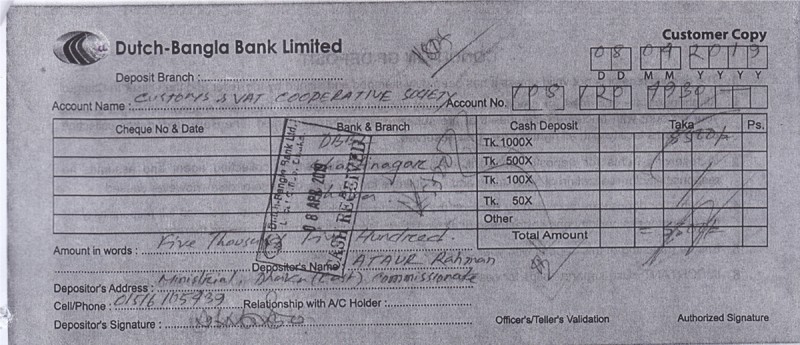 Customer Copy
Dutch-Bangla Bank Limited
08 04 2019
D D M M Y Y Y Y
Deposit Branch :
Account Name : CUSTOMS & VAT COOPERATIVE SOCIETY Account No. 108 120
Cheque No & Date Bank & Branch Cash Deposit Taka Ps.
Tk. 1000X
Tk. 500X
Tk. 100X
Tk. 50X
Other
Total Amount
Dutch-Bangla Bank Ltd.
08 APR 2019
CASH RECEIVED
Amount in words : Five Thousand Five Hundred.
Depositor's Name ATAUR Rahman
Depositor's Address : Ministerial, Dhaka (East) Commissionate
Cell/Phone : Relationship with A/C Holder :
Depositor's Signature : Officer's/Teller's Validation Authorized Signature